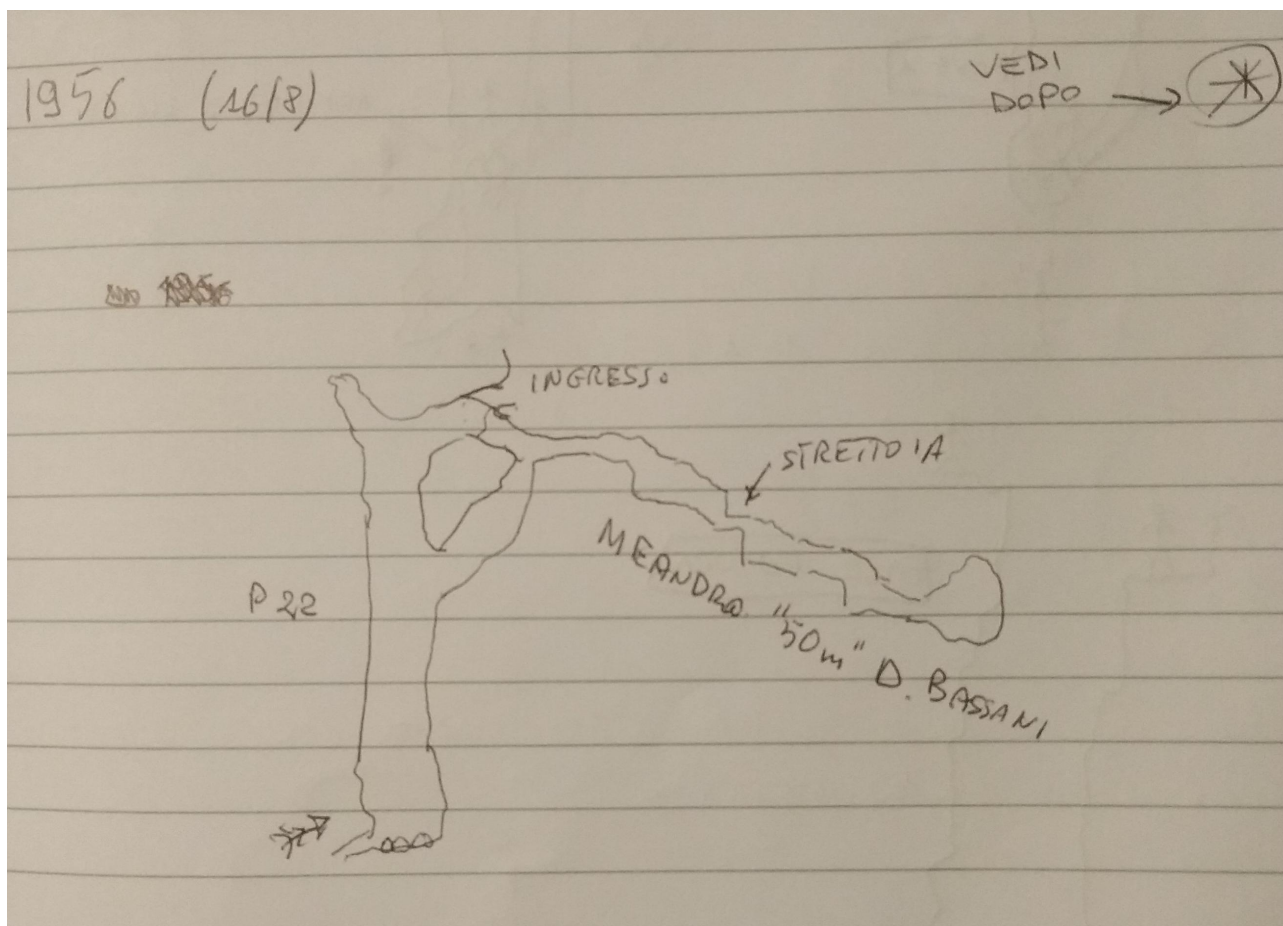 1956 (16/8)
VEDI
DOPO
INGRESSO
STRETTOIA
MEANDRO "50m" D. BASSANI
P 22